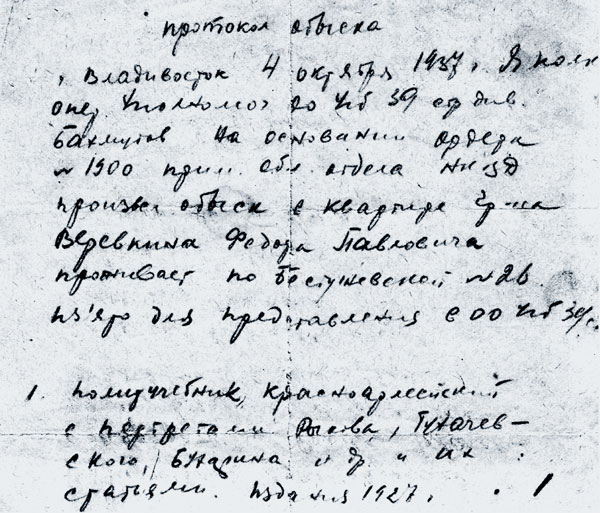 протокол обыска
г. Владивосток 4 октября 1937 г. Я пом
опер. Уполномоч 00 Уб 39 стр див.
Бахмутов на основании ордера
№ 1900 прим обл. отдела НКВД
произвел обыск в квартире гр-на
Веревкина Федора Павловича
проживает по Бестужевской № 26.
из'ято для представления в 00 Уб 39
1. политучебник, красноармейский
с портретами Рыкова, Тухачев-
ского, Бухарина и др и их
статьями. издания 1927 г. . 1